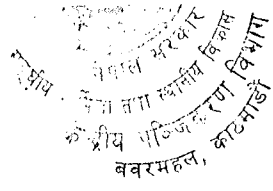 नेपाल सरकार
तथा स्थानीय विकास
केन्द्रीय पञ्जिकरण विभाग
बबरमहल, काठमाडौं